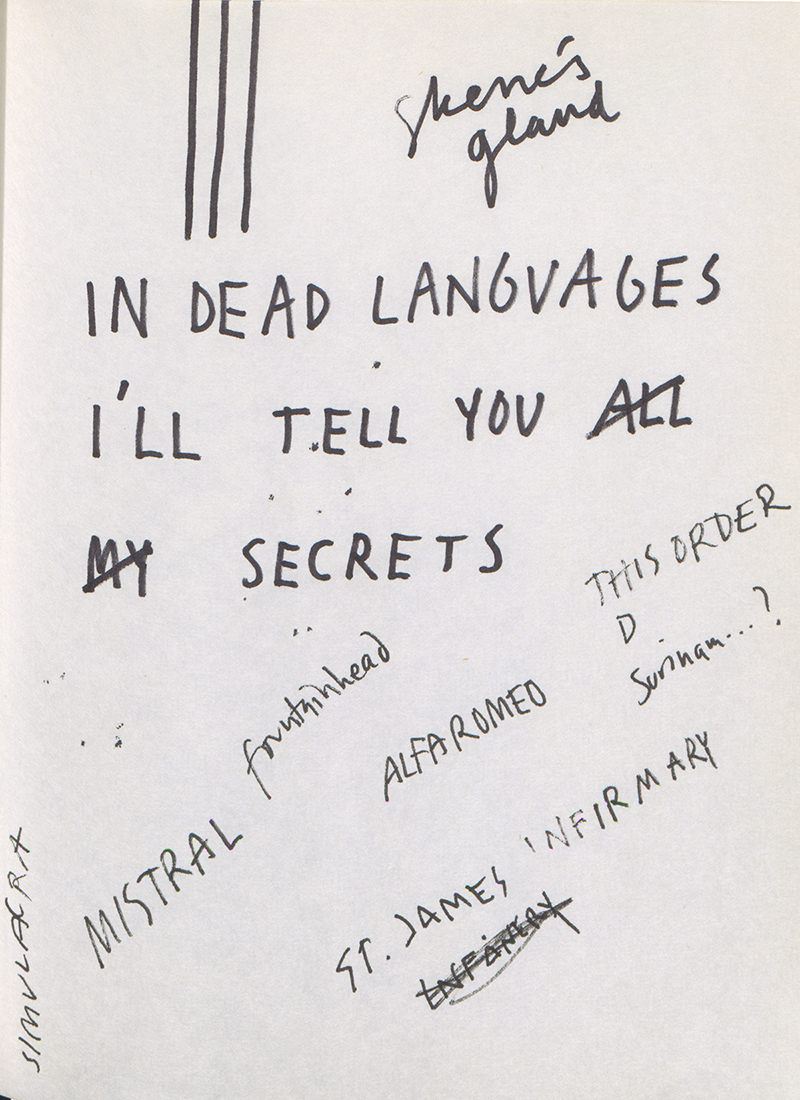 skene's
gland
IN DEAD LANGUAGES
I'LL TELL YOU ALL
MY SECRETS
THIS ORDER
D
Surinam...?
fountainhead
ALFA ROMEO
MISTRAL
ST. JAMES INFIRMARY
SIMULACRA